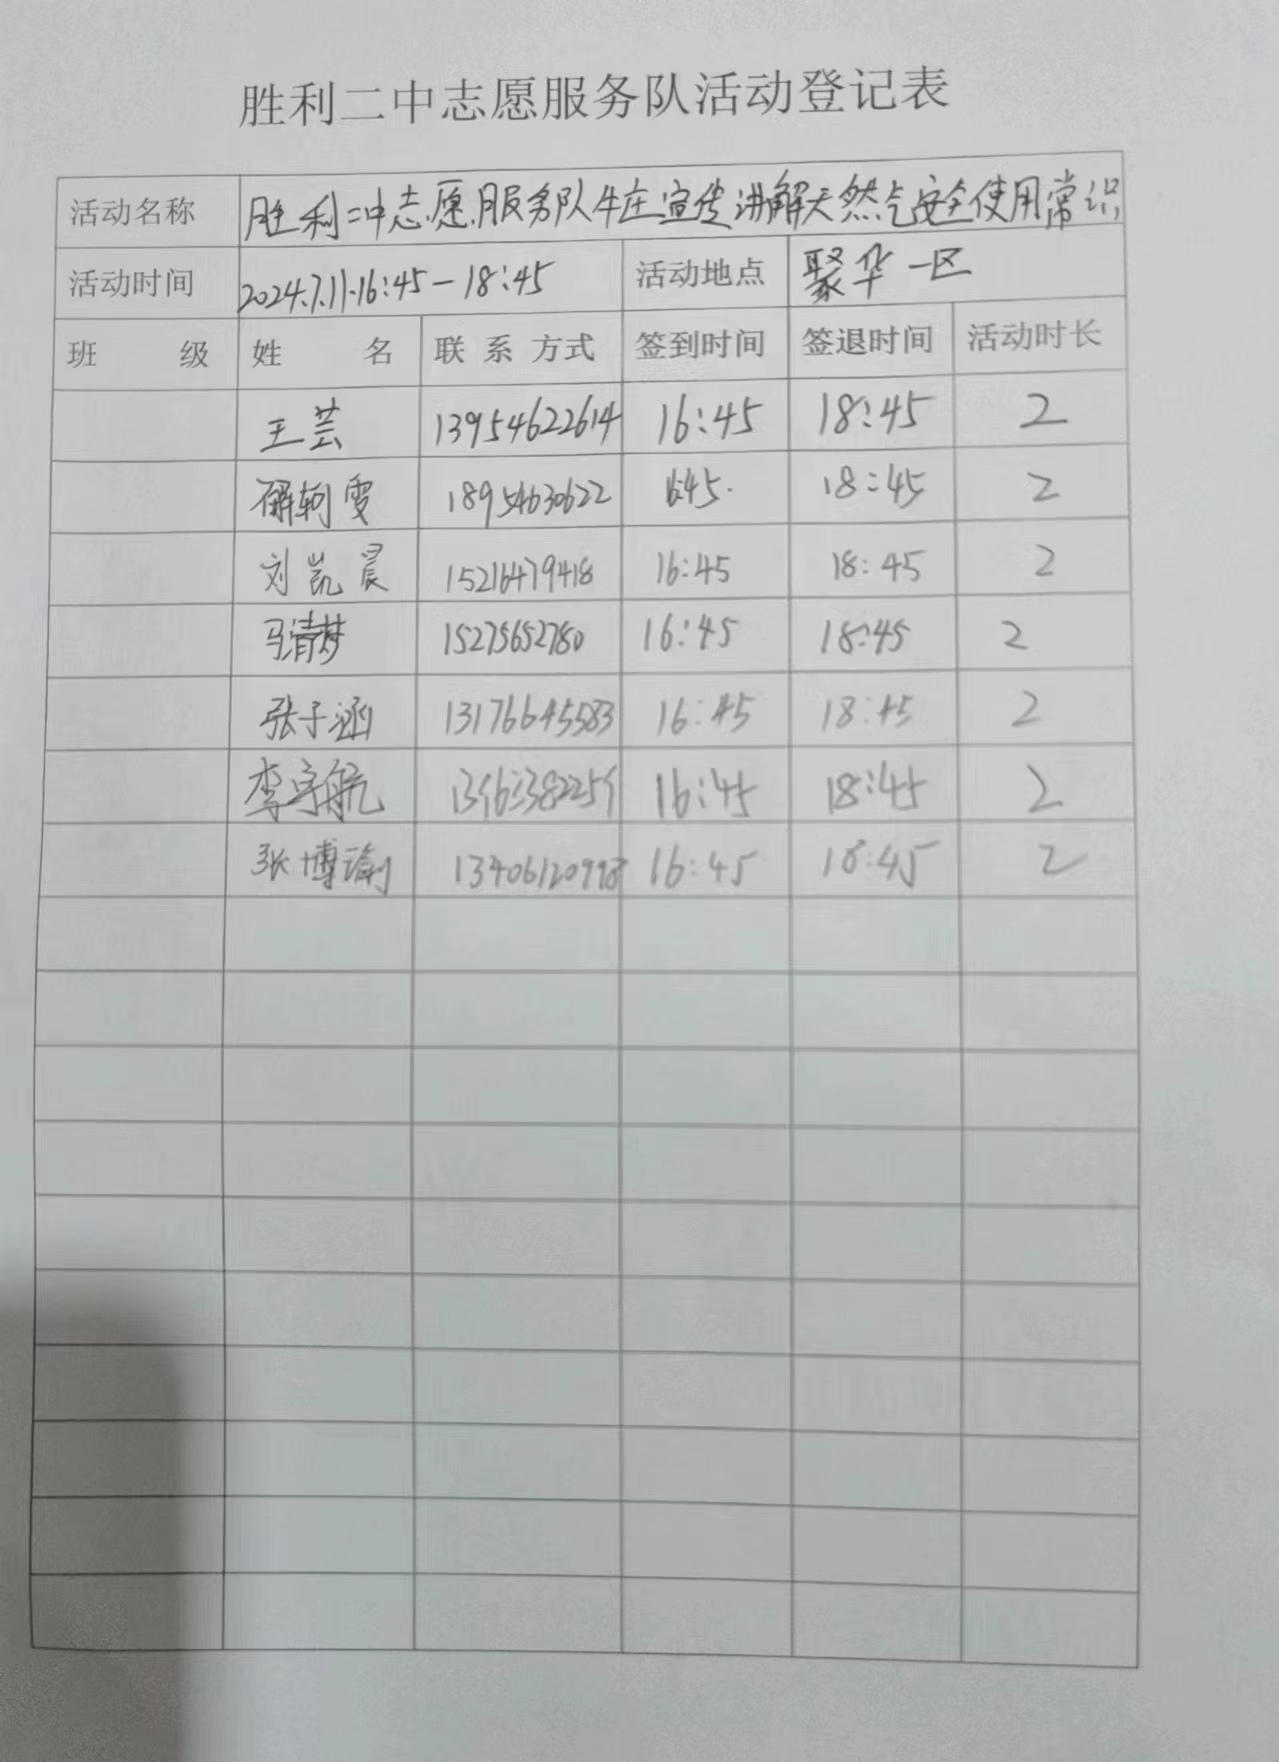 胜利二中志愿服务队活动登记表
活动名称 胜利二中志愿服务队牛庄宣传讲解天然气安全使用常识
活动时间 2024.7.11.16:45-18:45 活动地点 聚华一区
班 级 姓 名 联 系 方式 签到时间 签退时间 活动时长
王芸 13954622614 16:45 18:45 2
解轲雯 18954630622 18:45 2
刘凯晨 15216479418 16:45 18:45 2
马清梦 15275652780 16:45 18:45 2
张子涵 13176645583 16:45 18:45 2
李宇航 16:45 18:45 2
张博瑜 13406120998 16:45 18:45 2